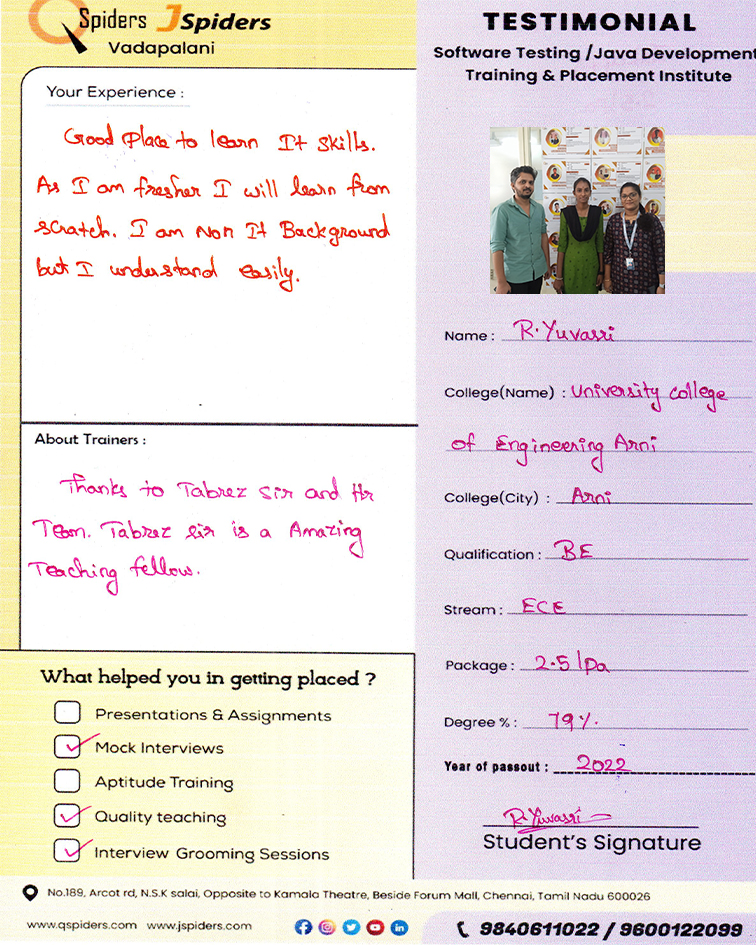 QSpiders JSpiders
Vadapalani
Your Experience :
Good Place to learn It skills.
As I am fresher I will learn from
scratch. I am Non It Background
but I understand easily.
About Trainers :
Thanks to Tabrez sir and Hr
Team. Tabrez sir is a Amazing
Teaching fellow.
What helped you in getting placed ?
Presentations & Assignments
Mock Interviews
Aptitude Training
Quality teaching
Interview Grooming Sessions
TESTIMONIAL
Software Testing /Java Development
Training & Placement Institute
Name : R.Yuvasri
College(Name) : University college
of Engineering Arni
College(City) : Arni
Qualification : BE
Stream : ECE
Package : 2.5 lpa
Degree % : 79%.
Year of passout : 2022
R.Yuvasri
Student's Signature
No.189, Arcot rd, N.S.K salai, Opposite to Kamala Theatre, Beside Forum Mall, Chennai, Tamil Nadu 600026
www.qspiders.com www.jspiders.com
9840611022 / 9600122099